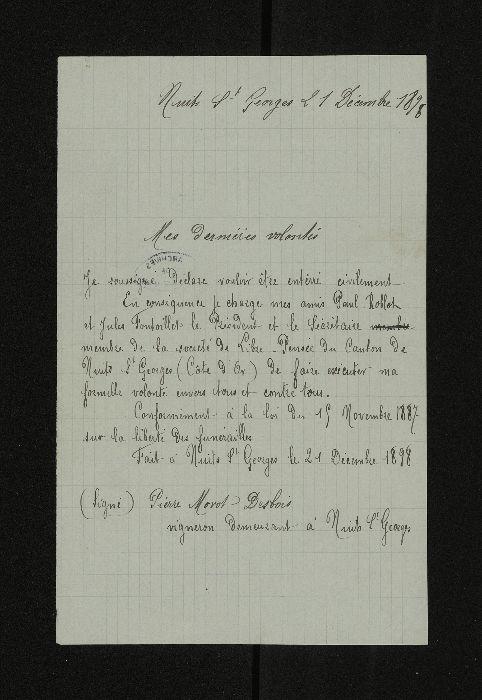 Nuits St Georges 21 Décembre 1898
Mes dernières volontés
ARCHIVES
Je soussigné Déclare vouloir être entéré civilement
En conséquence je charge mes amis Paul
et Jules le Président et le Sécrétaire membre
membre de la société de Libre-Pensée du Canton de
Nuits St Georges (Côte d'Or) de faire executer ma
formelle volonté envers etous et contre tous.
Conformement à la loi du 15 Novembre 1887
sur la liberté des funerailles
Fait à Nuits St Georges le 21 Décembre 1898
(Signé) Pierre Morot-Desbois
vigneron demeurant à Nuits St Georges